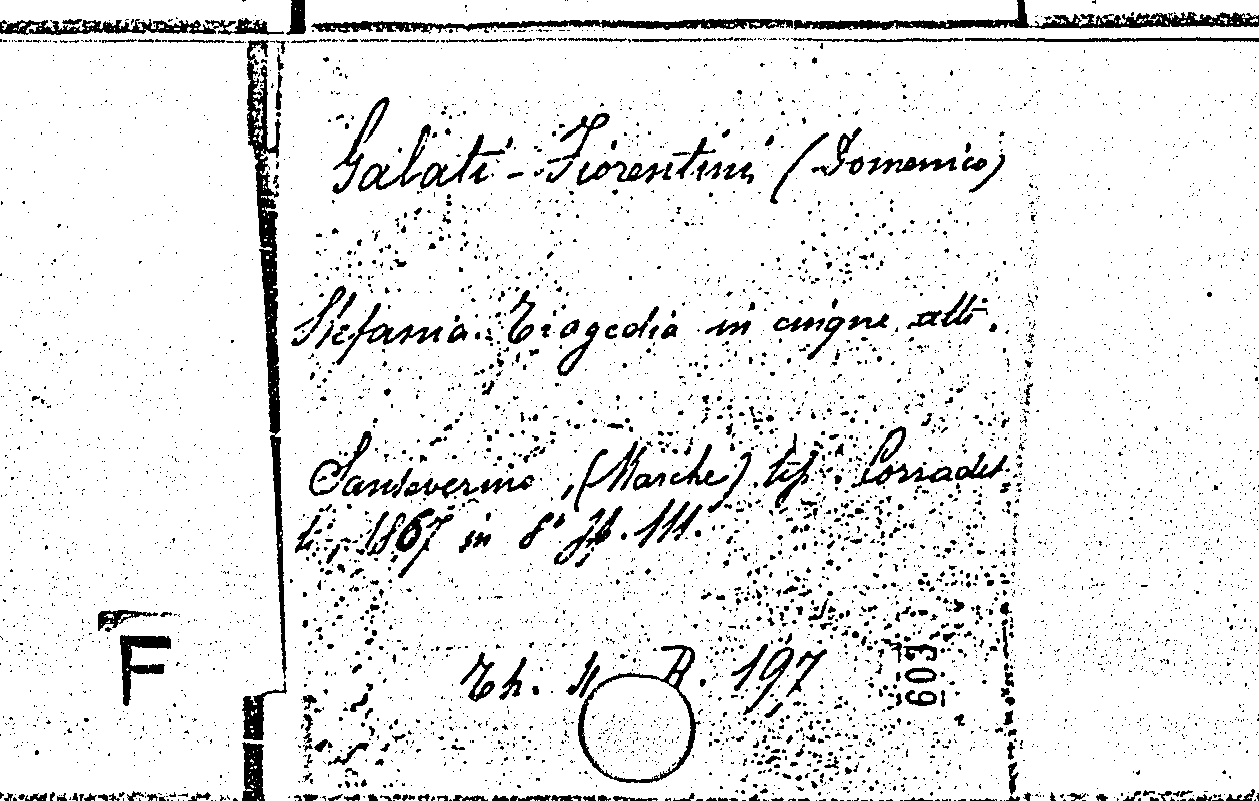 Galati-Fiorentini (Domenico)
Stefania. Tragedia in cinque atti.
Sanseverino, (Marche) tip. Corradet
ti, 1867 in 8° pp. 111.
F
R. 197
603